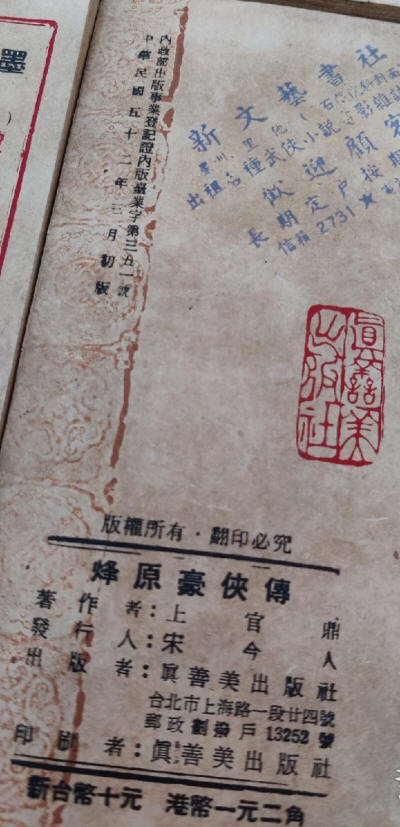 墨
內政部出版事業登記證內版臺業字第三五一號
中華民國五十二年三月初版
新文藝書社
出租各種武俠小說電影雜誌
歡迎顧客
長期定戶按期
信箱2731★
眞善美
出版社
版權所有·翻印必究
烽原豪俠傳
著作者：上官鼎
發行人：宋今人
出版者：眞善美出版社
台北市上海路一段廿四號
郵政劃撥戶13252號
印刷者：眞善美出版社
新台幣十元 港幣一元二角